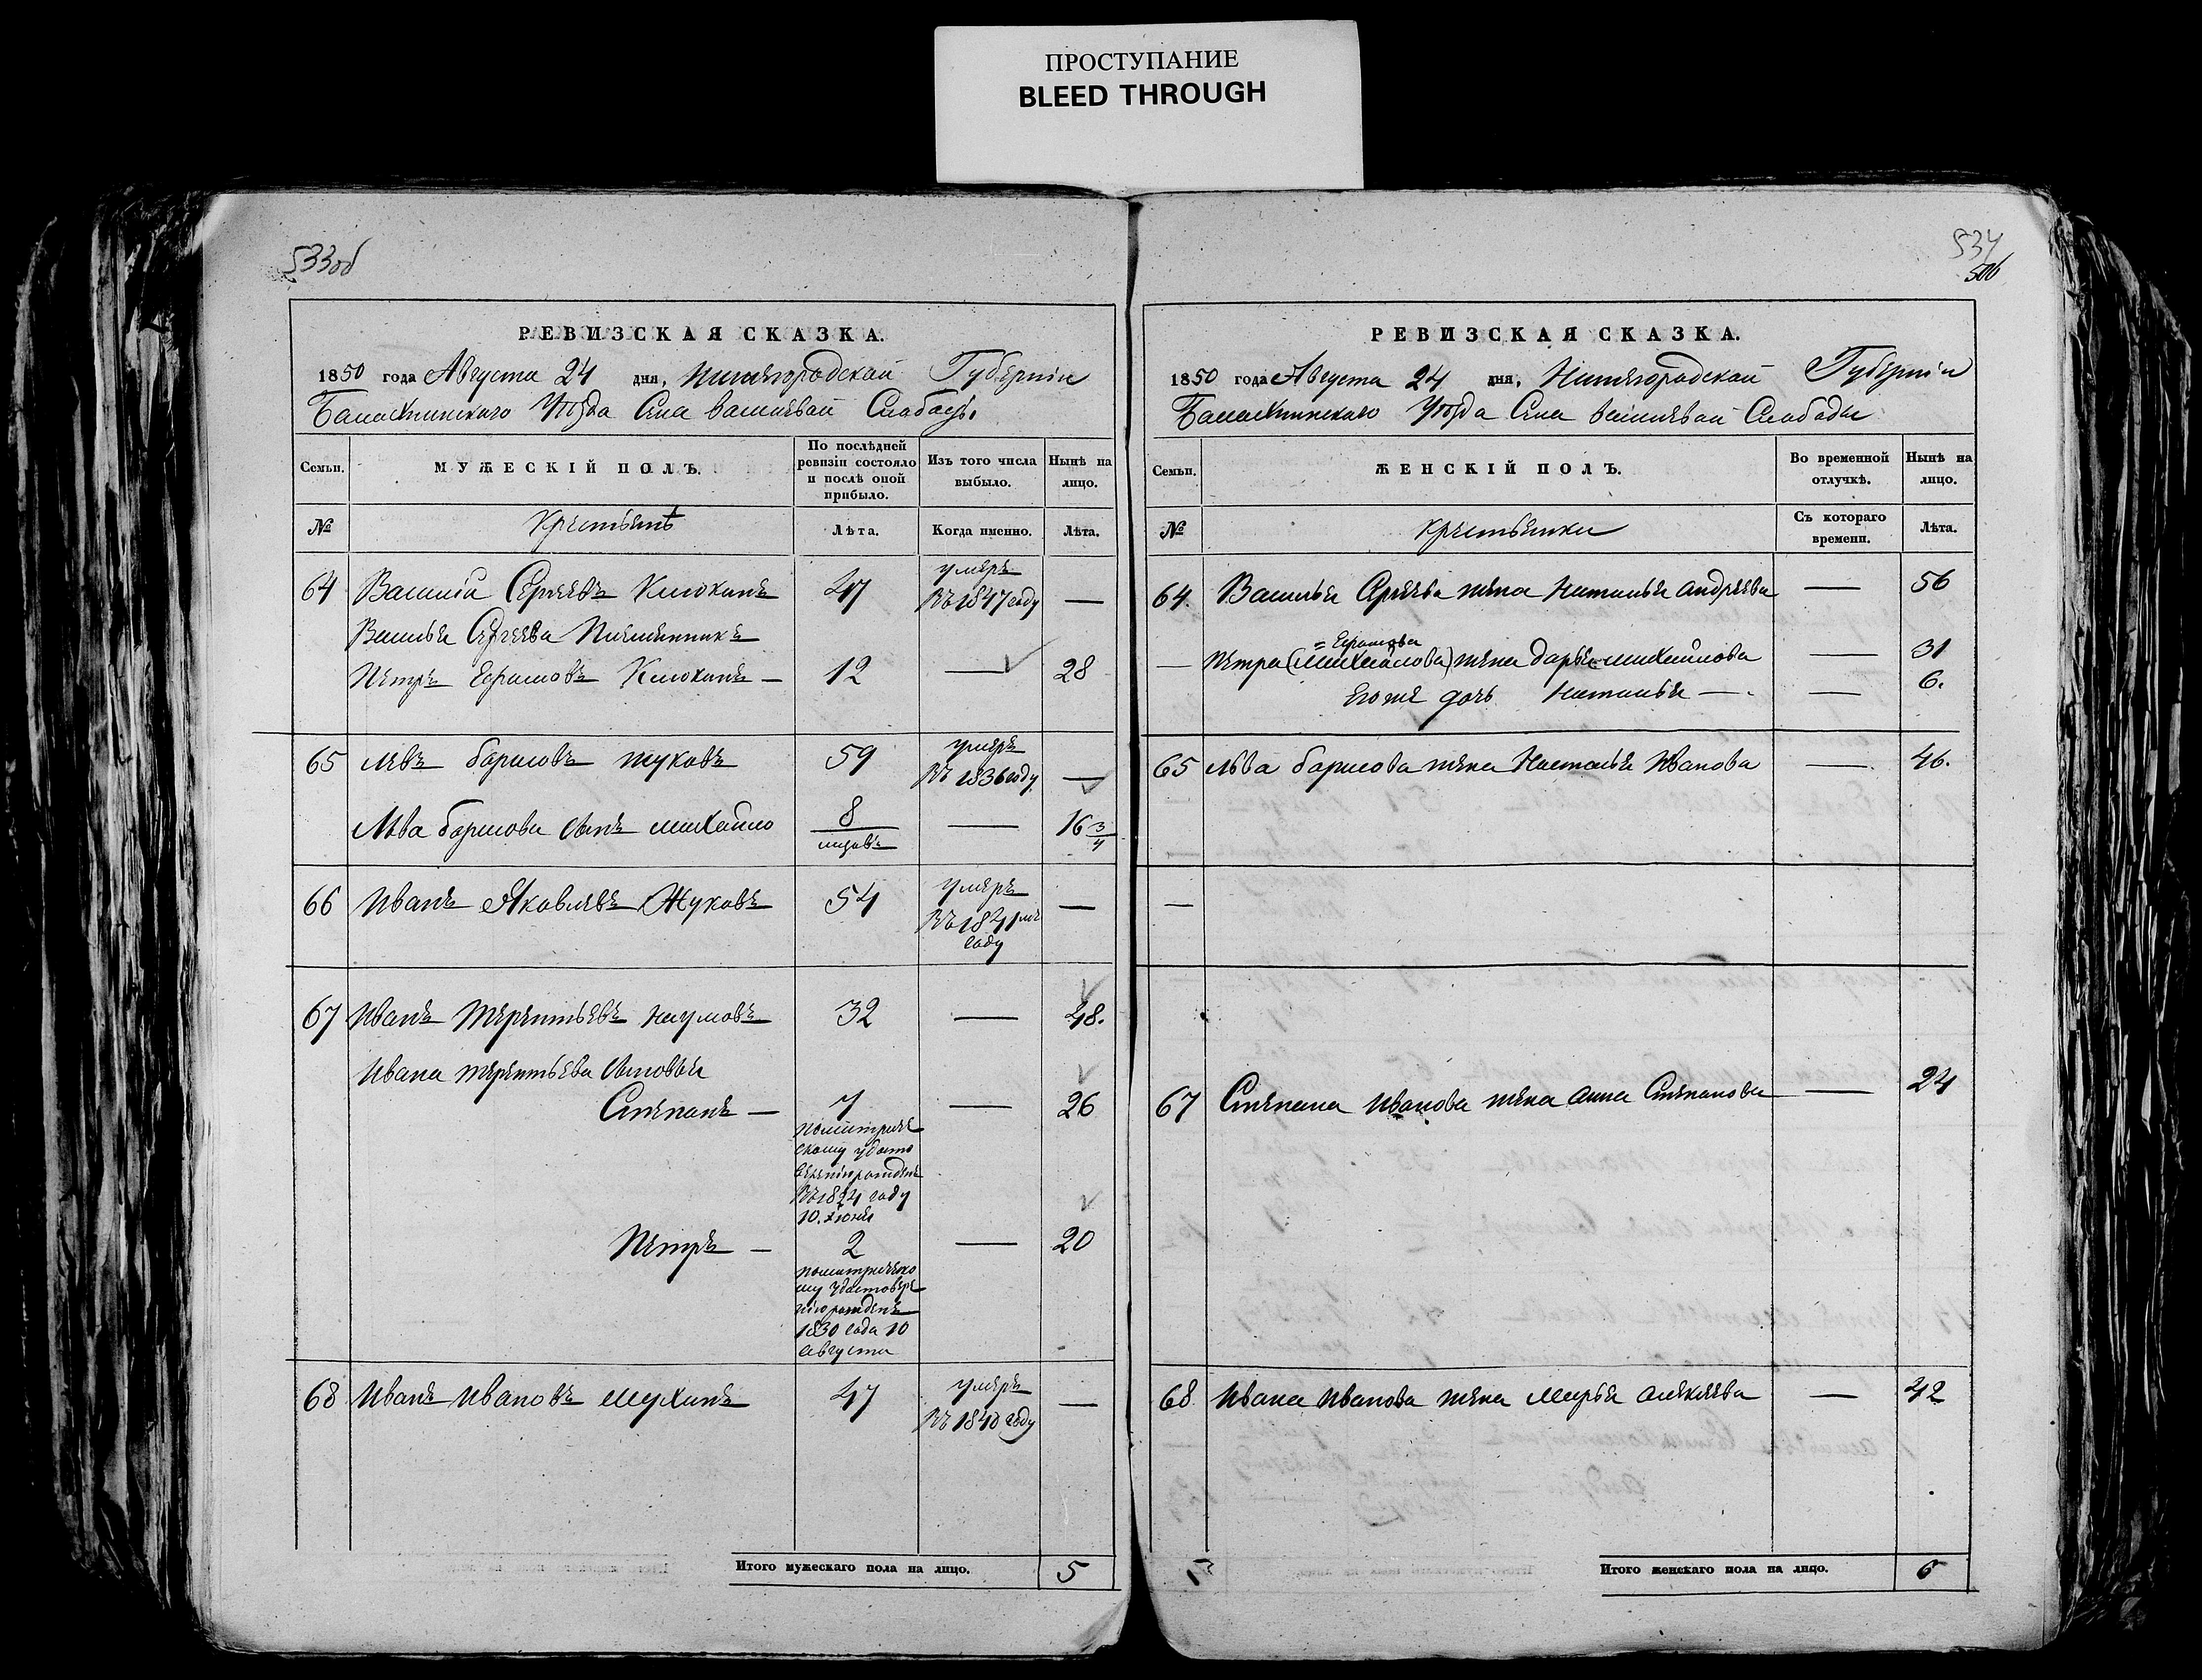 ПРОСТУПАНИЕ
BLEED THROUGH
533об
РЕВИЗСКАЯ СКАЗКА.
1850 года Августа 24 дня, Нижегородской Губернiи
Балахнинскаго Уѣзда Села Василевой Слободы
Семьи.
МУЖЕСКIЙ ПОЛЪ.
По послѣдней
ревизiи состояло
и послѣ оной
прибыло.
Изъ того числа
выбыло.
Нынѣ на
лицо.
№
Крестьянѣ
Лѣта.
Когда именно.
Лѣта.
64 Василiй Сергѣевъ Клюкинъ 47 умеръ въ 1847 году —
Василья Сергѣева Племянникъ
Петръ Ефимовъ Клюкинъ — 12 — 28
65 Левъ борисовъ жуковъ 59 умеръ въ 1836 году —
Льва борисова сынъ михайло 8 мѣсяцевъ — 16 3/4
66 Иванъ Яковлевъ Жуковъ 54 умеръ въ 1841 м году —
67 Иванъ терентьевъ наумовъ 32 — 48.
Ивана терентьева сыновья
Степанъ — 7 — 26
по метриче
скому удосто
веренiю рожденъ
въ 1824 году
10. июня
Петръ — 2 — 20
по метрическо
му удостовере
нiю рожденъ
1830 года 10
августа
68 Иванъ Ивановъ мухинъ 47 умеръ въ 1840 году —
Итого мужескаго пола на лицо. 5
534
506
РЕВИЗСКАЯ СКАЗКА.
1850 года Августа 24 дня, Нижегородской Губернiи
Балахнинскаго Уѣзда Села василевой Слободы
Семьи.
ЖЕНСКIЙ ПОЛЪ.
Во временной
отлучкѣ.
Нынѣ на
лицо.
№
крестьянки
Съ котораго
времени.
Лѣта.
64. Василья Сергѣева жена Наталья андреева — 56
= Ефимова
— Петра (михайлова) жена дарья михайлова — 31
Его же дочь Наталья — — 6.
65 Льва борисова жена Наталья Иванова — 46.
—
67 Степана Иванова жена анна Степанова — 24
68 Ивана Иванова жена марья алексеева — 42
Итого женскаго пола на лицо. 6